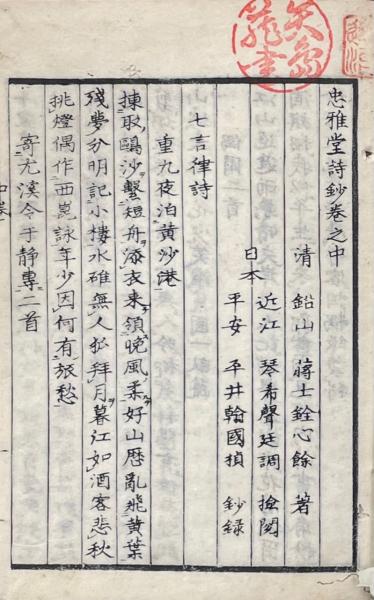 忠雅堂詩鈔卷之中
清 鉛山 蔣士銓心餘 著
近江 琴希聲廷調 撿閱
日本
平安 平井翰國 鈔録
七言律詩
重九夜泊黄沙港
揀取鷗沙繫短舟添衣來領晚風柔好山歴亂飛黄葉
残夢分明記小樓水碓無人拜月暮江如酒客悲秋
挑燈偶作西崑詠年少因何有旅愁
寄尤溪令于静專二首